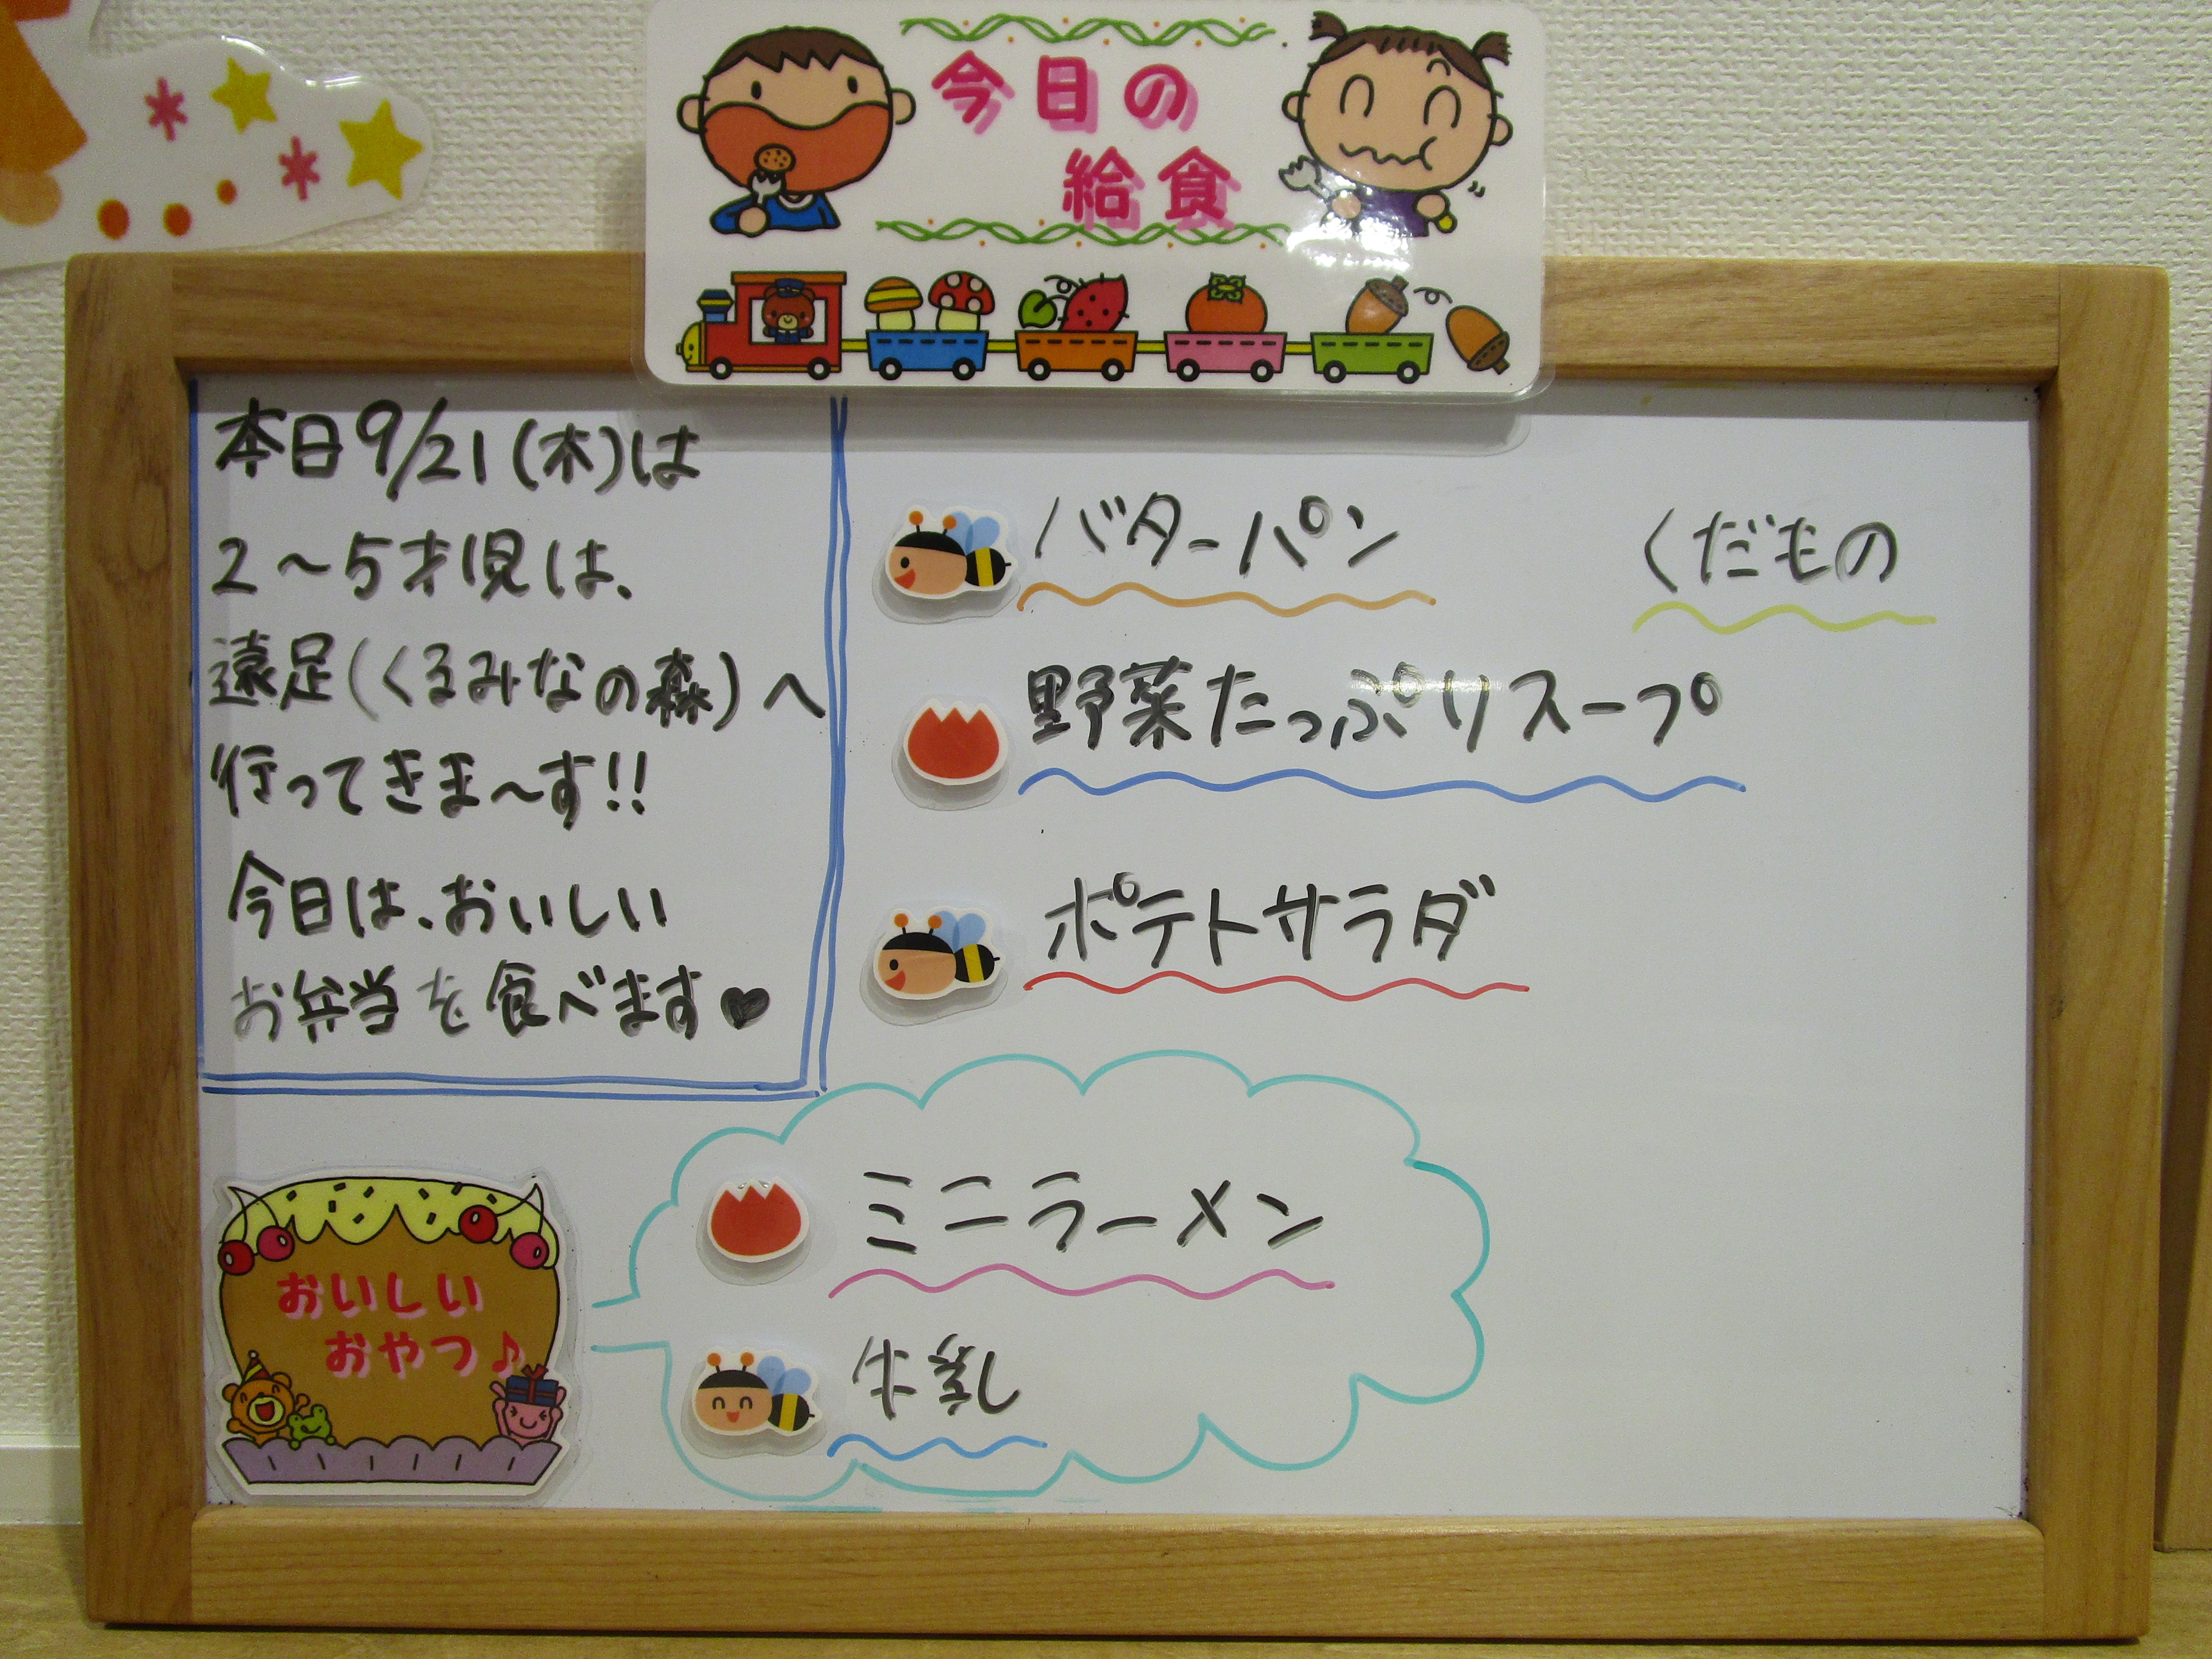 今日の
給食
本日9/21(木)は
2〜5才児は、
遠足(くるみなの森)へ
行ってきま〜す!!
今日は、おいしい
お弁当を食べます♥
バターパン
くだもの
野菜たっぷりスープ
ポテトサラダ
おいしい
おやつ♪
ミニラーメン
牛乳